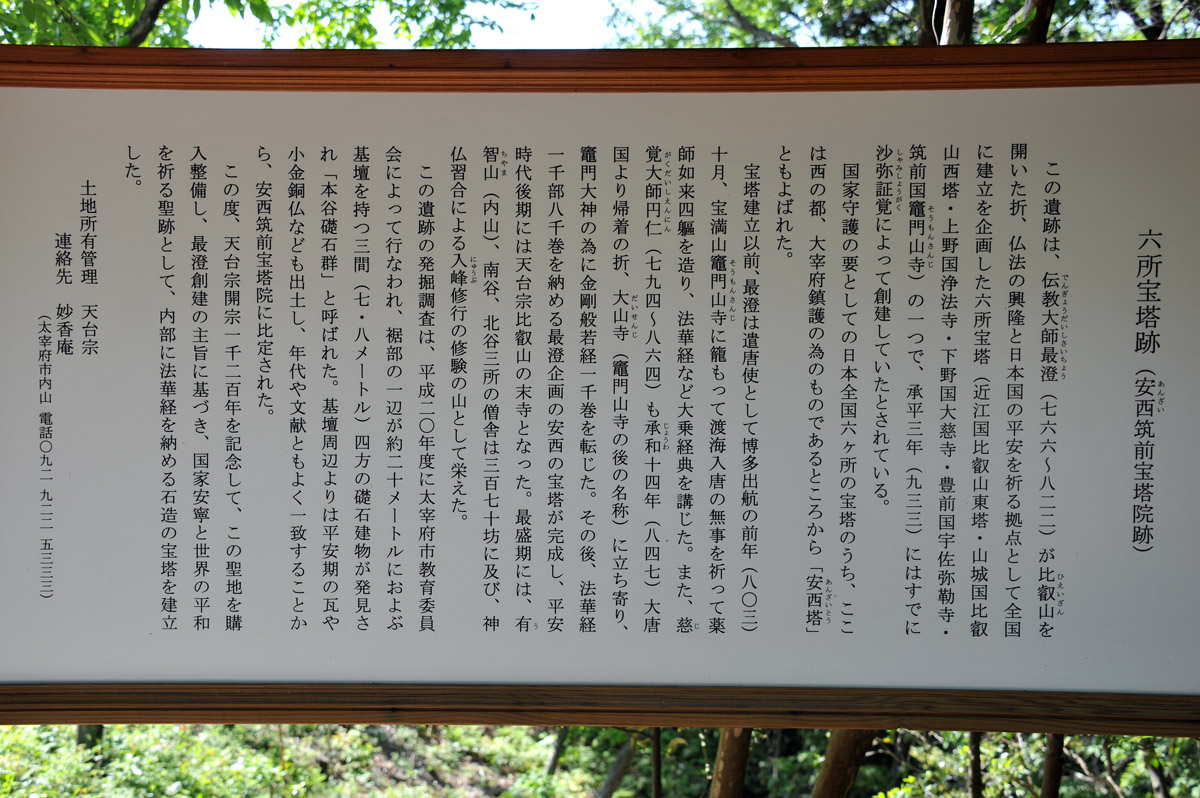 六所宝塔跡（安西筑前宝塔院跡）
あんざい
この遺跡は、伝教大師最澄（七六六〜八二二）が比叡山を
でんぎょうだいしさいちょう
ひえいざん
開いた折、仏法の興隆と日本国の平安を祈る拠点として全国
に建立を企画した六所宝塔（近江国比叡山東塔・山城国比叡
山西塔・上野国浄法寺・下野国大慈寺・豊前国宇佐弥勒寺・
筑前国竈門山寺）の一つで、承平三年（九三三）にはすでに
そうもんさんじ
沙弥証覚によって創建していたとされている。
しゃみしょうがく
国家守護の要としての日本全国六ヶ所の宝塔のうち、ここ
は西の都、大宰府鎮護の為のものであるところから「安西塔」
あんざいとう
ともよばれた。
宝塔建立以前、最澄は遣唐使として博多出航の前年（八〇三）
十月、宝満山竈門山寺に籠もって渡海入唐の無事を祈って薬
そうもんさんじ
師如来四軀を造り、法華経など大乗経典を講じた。また、慈
じ
覚大師円仁（七九四〜八六四）も承和十四年（八四七）大唐
がくだいしえんにん
じょうわ
国より帰着の折、大山寺（竈門山寺の後の名称）に立ち寄り、
だいせんじ
竈門大神の為に金剛般若経一千巻を転じた。その後、法華経
一千部八千巻を納める最澄企画の安西の宝塔が完成し、平安
時代後期には天台宗比叡山の末寺となった。最盛期には、有
う
智山（内山）、南谷、北谷三所の僧舎は三百七十坊に及び、神
ちやま
仏習合による入峰修行の修験の山として栄えた。
にゅうぶ
この遺跡の発掘調査は、平成二〇年度に太宰府市教育委員
会によって行なわれ、裾部の一辺が約二十メートルにおよぶ
基壇を持つ三間（七・八メートル）四方の礎石建物が発見さ
れ「本谷礎石群」と呼ばれた。基壇周辺よりは平安期の瓦や
小金銅仏なども出土し、年代や文献ともよく一致することか
ら、安西筑前宝塔院に比定された。
この度、天台宗開宗一千二百年を記念して、この聖地を購
入整備し、最澄創建の主旨に基づき、国家安寧と世界の平和
を祈る聖跡として、内部に法華経を納める石造の宝塔を建立
した。
土地所有管理　天台宗
連絡先　妙香庵
（太宰府市内山　電話〇九二一九二二一五三三三）